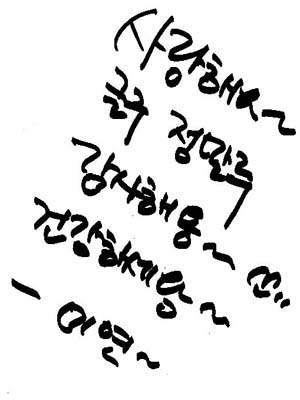 사랑해요~
글구 정말루
감사해용~ ^^
건강하세용~
- 미연~